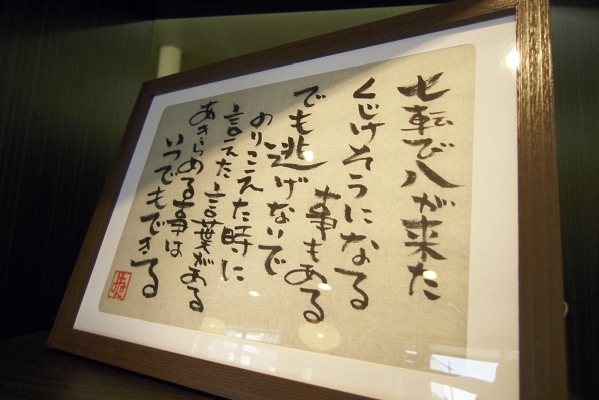 七転び八が来た
くじけそうになる
事もある
でも逃げないで
のりこえた時に
言えた言葉がある
あきらめる事は
いつでもできる